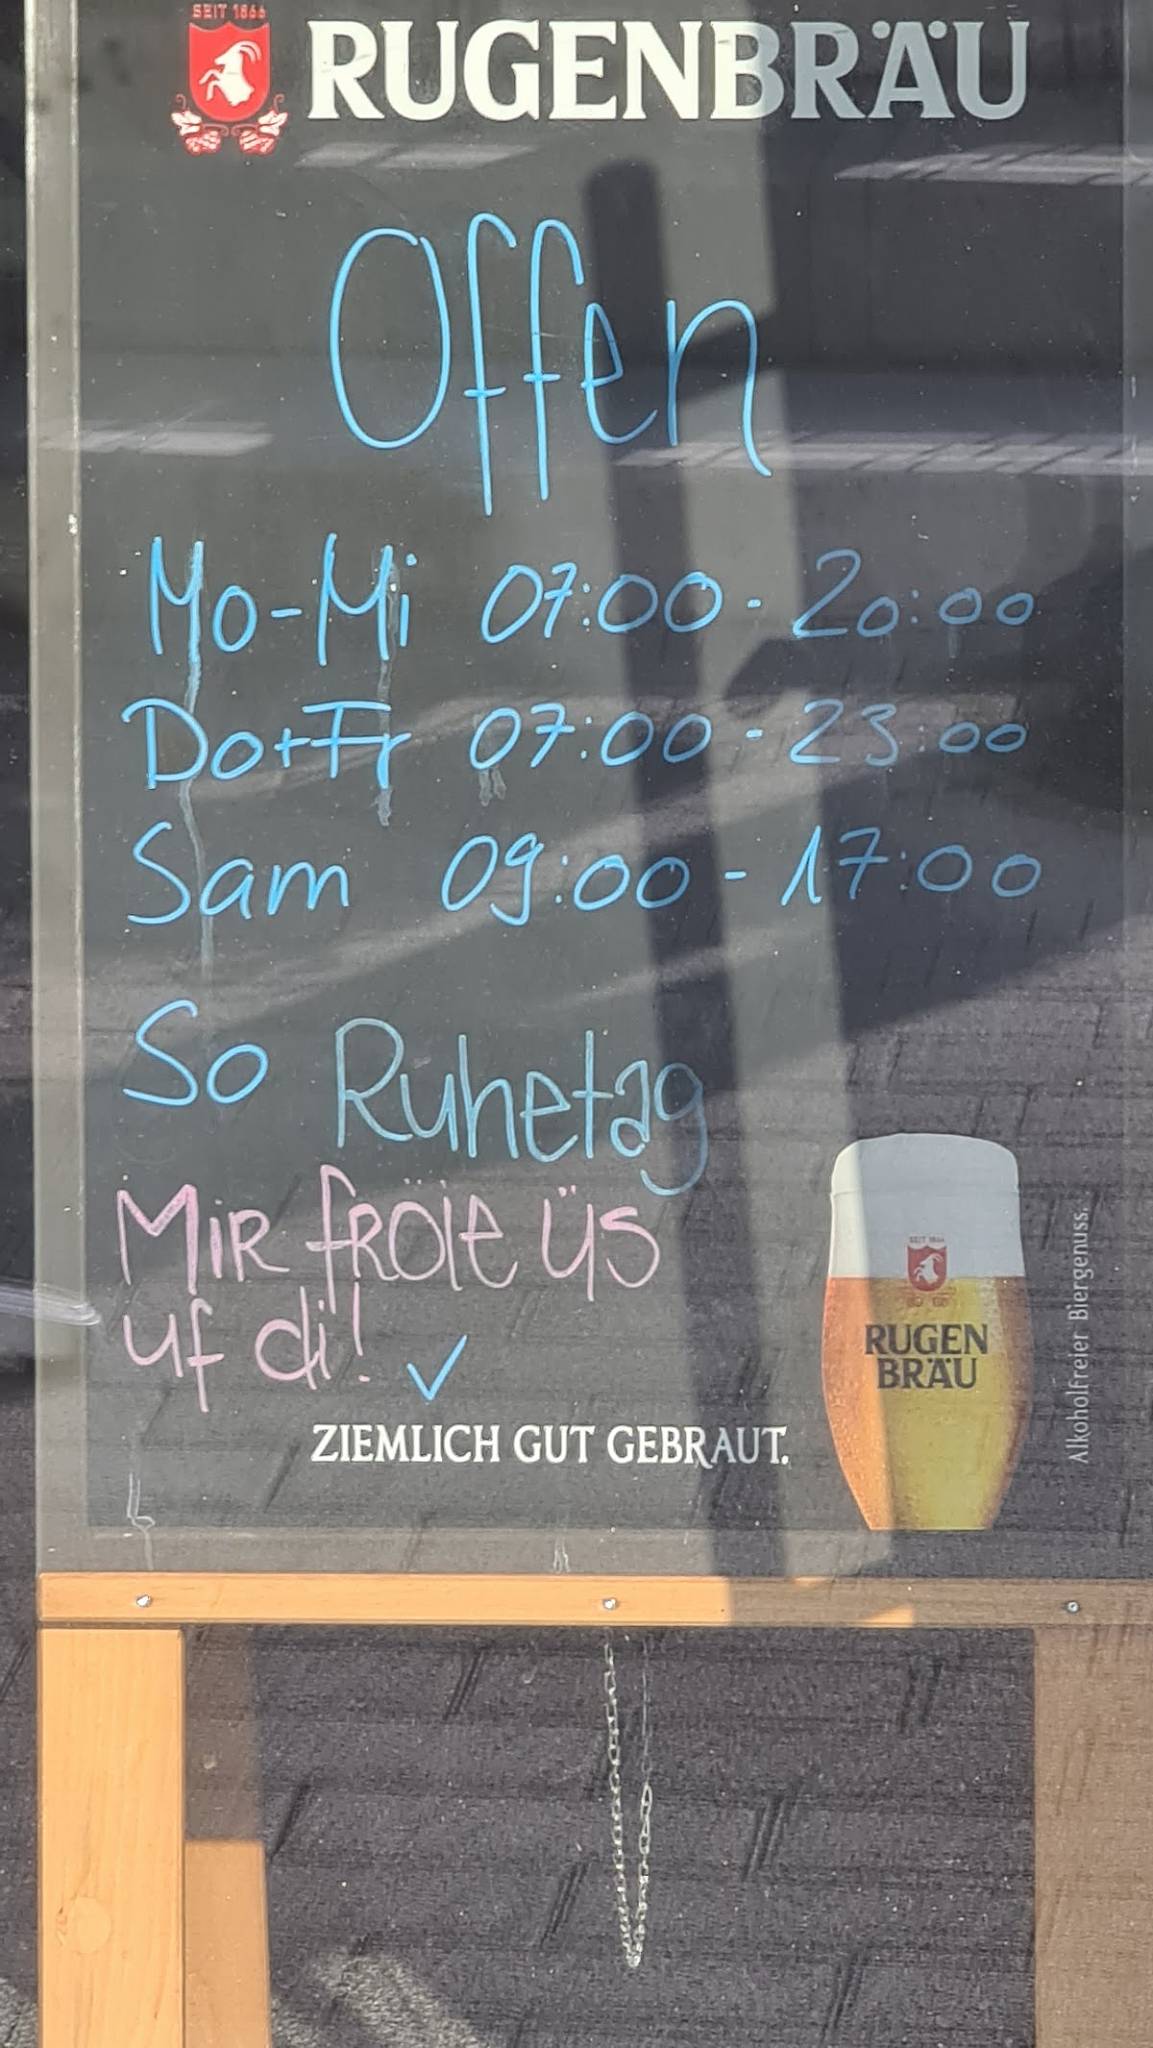 SEIT 1866
RUGENBRÄU
Offen
Mo-Mi 07:00 - 20:00
Do+Fr 07:00 - 23:00
Sam 09:00 - 17:00
So Ruhetag
MiR fRöie üs
uf di!
SEIT 1866
RUGEN
BRÄU
ZIEMLICH GUT GEBRAUT.
Alkoholfreier Biergenuss.